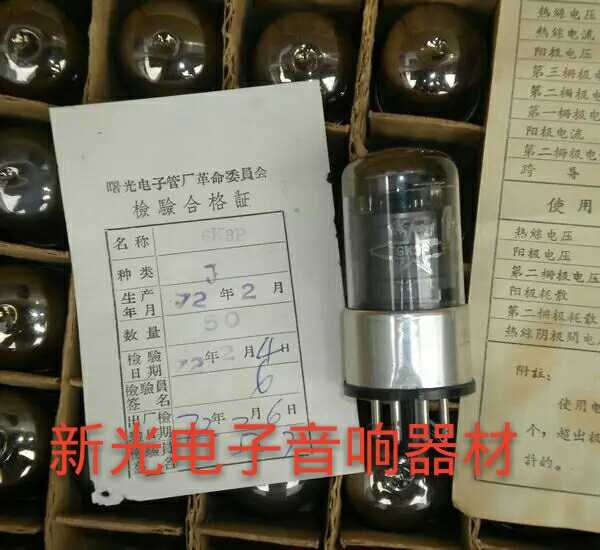 曙光电子管厂革命委員会
檢驗合格証
名称 6K8P
种类 J
生产年月 72年2月
数量 50
检驗日期 72年2月4日
檢驗員签名 6
新光电子音响器材
6K8P
热絲电压
热絲电流
阳极电压
第三栅极电
第二栅极电
第一栅极电
阳极电流
第二栅极电
跨导
使用
热絲电压
阳极电压
第二栅极电压
阳极耗散
第二栅极耗散
热絲阴极間电压
附註:
使用电
个，超出极
許的。